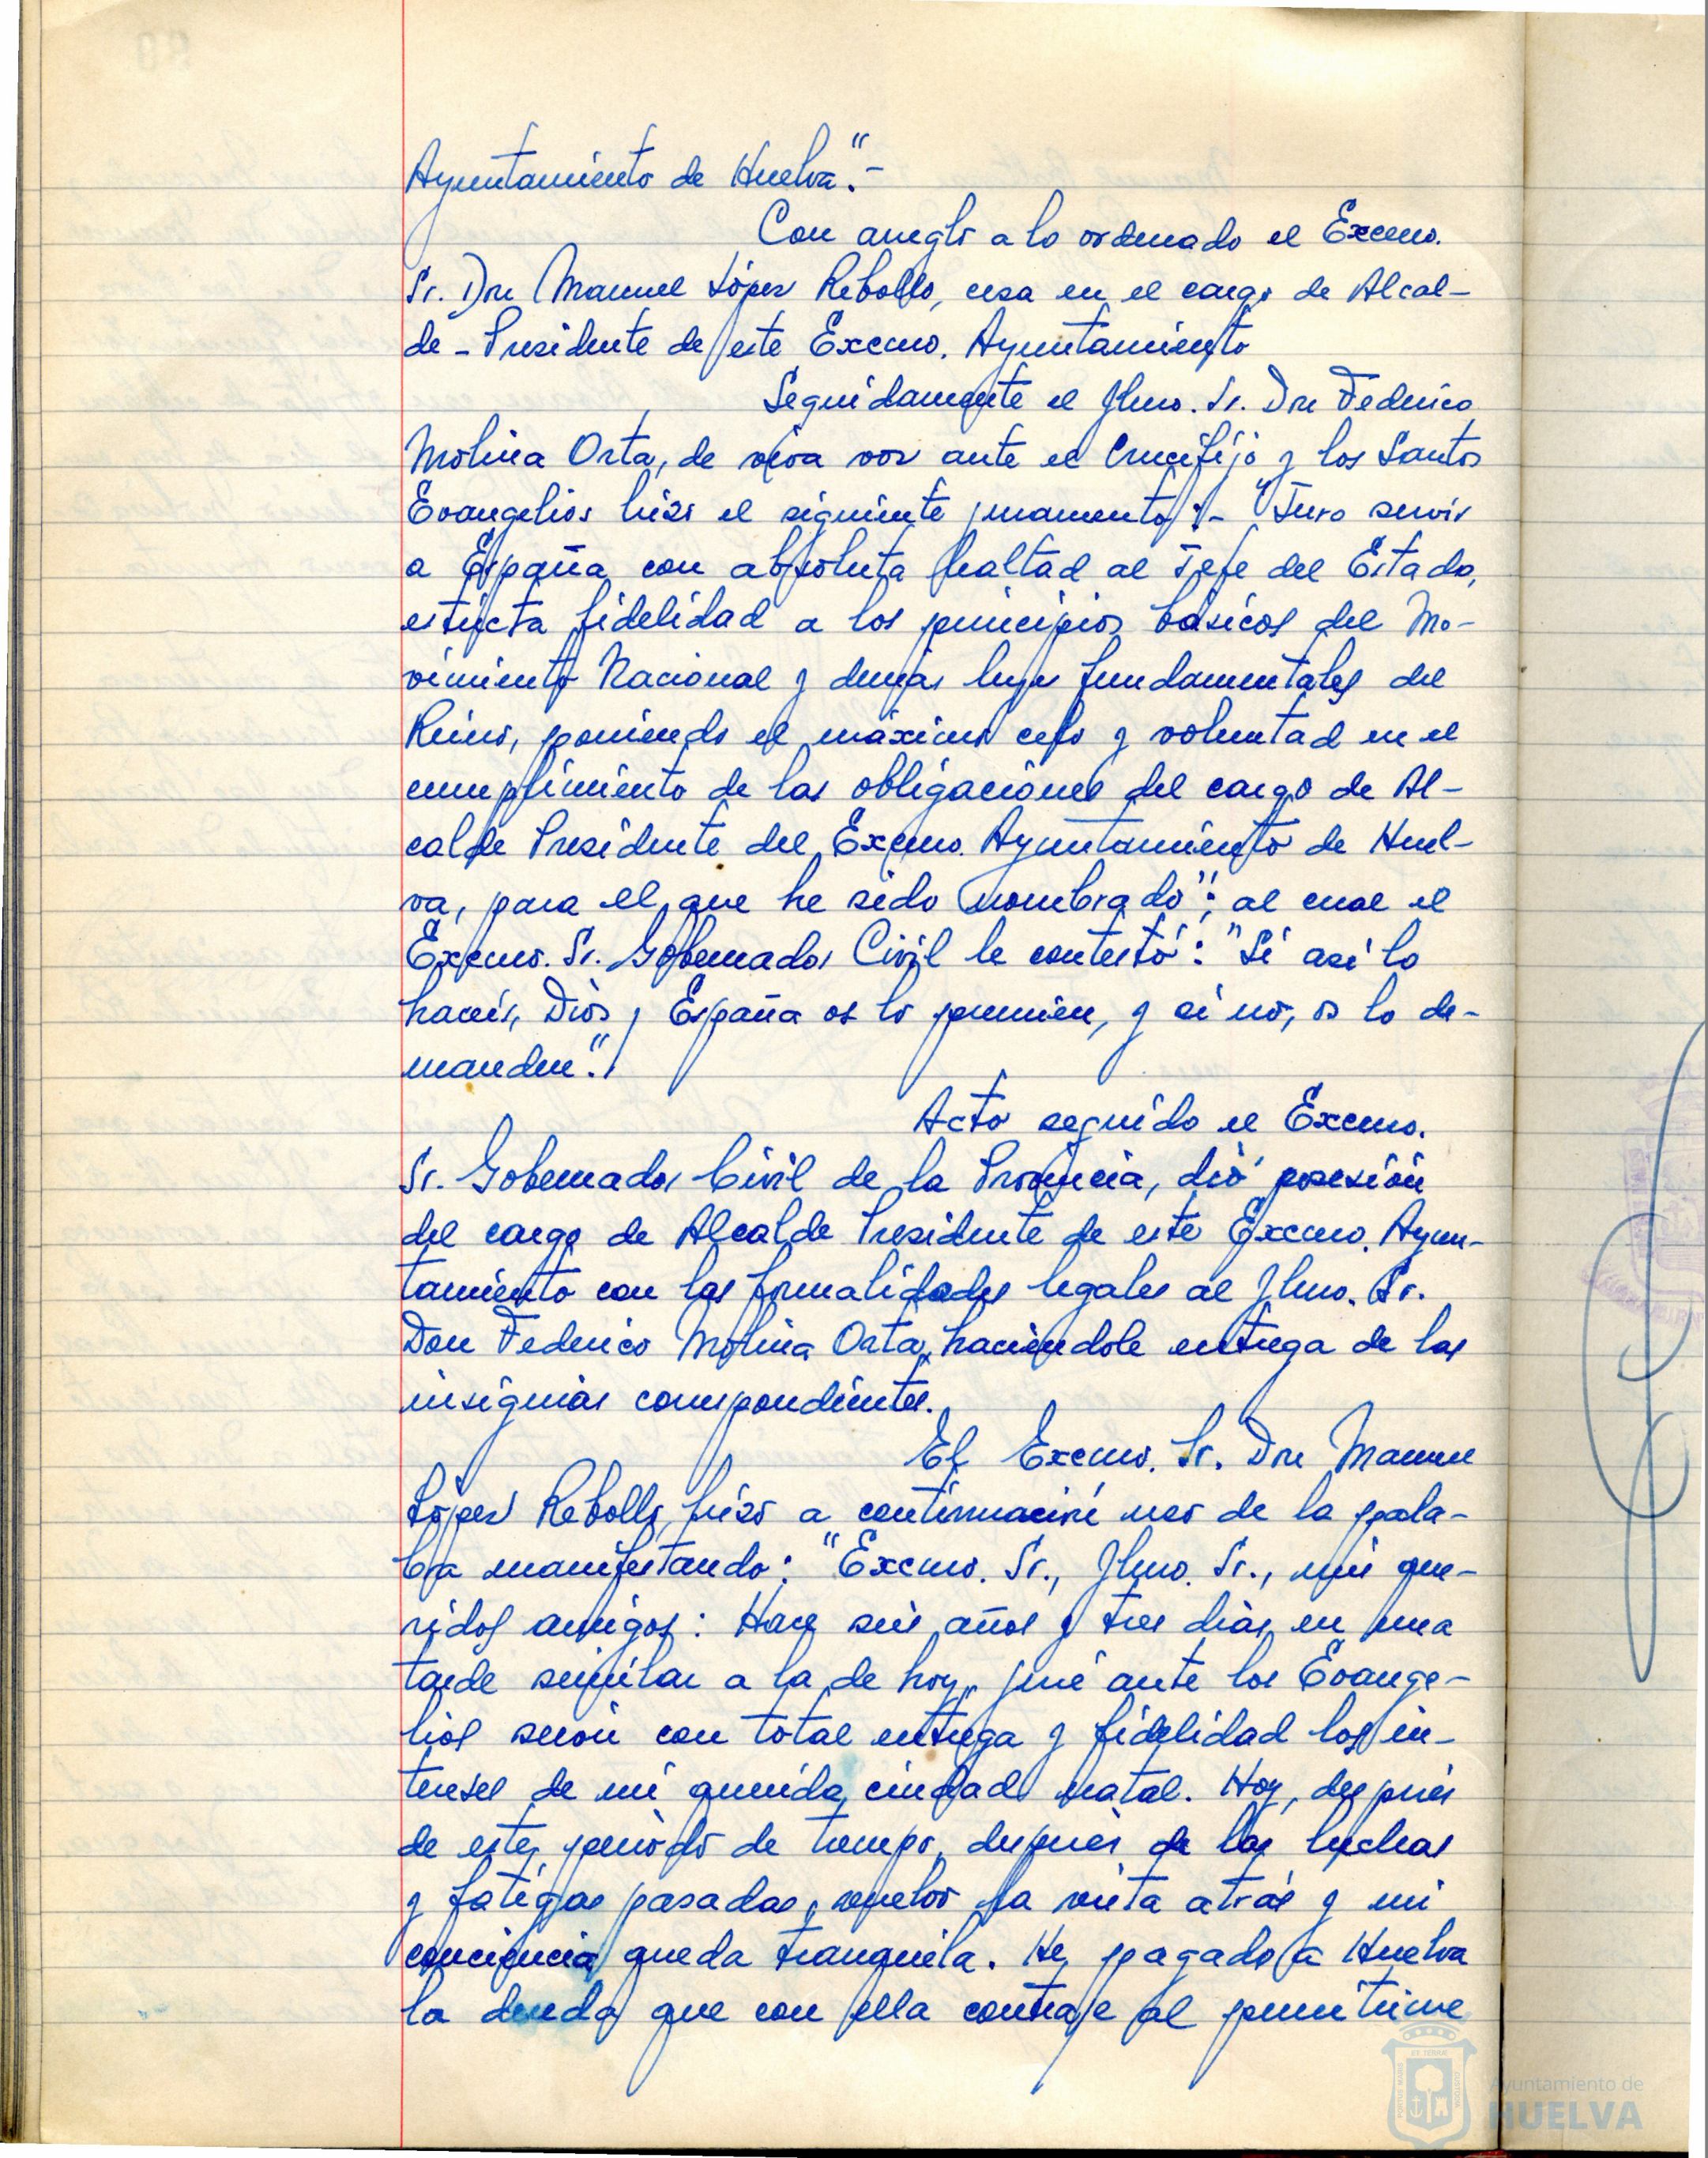 Ayuntamiento de Huelva".-
Con arreglo a lo ordenado el Excmo.
Sr. Don Manuel López Rebollo, cesa en el cargo de Alcal-
de-Presidente de este Excmo. Ayuntamiento
Seguidamente el Ilmo. Sr. Don Federico
Molina Orta, de viva voz ante el Crucifijo y los Santos
Evangelios hizo el siguiente juramento:- "Juro servir
a España con absoluta lealtad al Jefe del Estado,
estricta fidelidad a los principios básicos del Mo-
vimiento Nacional y demás leyes fundamentales del
Reino, poniendo el máximo celo y voluntad en el
cumplimiento de las obligaciones del cargo de Al-
calde Presidente del Excmo. Ayuntamiento de Huel-
va, para el que he sido nombrado"; al cual el
Excmo. Sr. Gobernador Civil le contestó: "Si así lo
haceis, Dios y España os lo premien, y si no, os lo de-
manden".
Acto seguido el Excmo.
Sr. Gobernador Civil de la Provincia, dió posesión
del cargo de Alcalde Presidente de este Excmo. Ayun-
tamiento con las formalidades legales al Ilmo. Sr.
Don Federico Molina Orta, haciéndole entrega de las
insignias correspondientes.
El Excmo. Sr. Don Manuel
López Rebollo, hizo a continuación uso de la pala-
bra manifestando: "Excmo. Sr., Ilmo. Sr., mis que-
ridos amigos: Hace seis años y tres días, en una
tarde similar a la de hoy, juré ante los Evange-
lios servir con total entrega y fidelidad los in-
tereses de mi querida ciudad natal. Hoy, después
de este periodo de tiempo, después de las luchas
y fatigas pasadas, vuelvo la vista atrás y mi
conciencia queda tranquila. He pagado a Huelva
la deuda que con ella contraje al permitirme
Ayuntamiento de
HUELVA